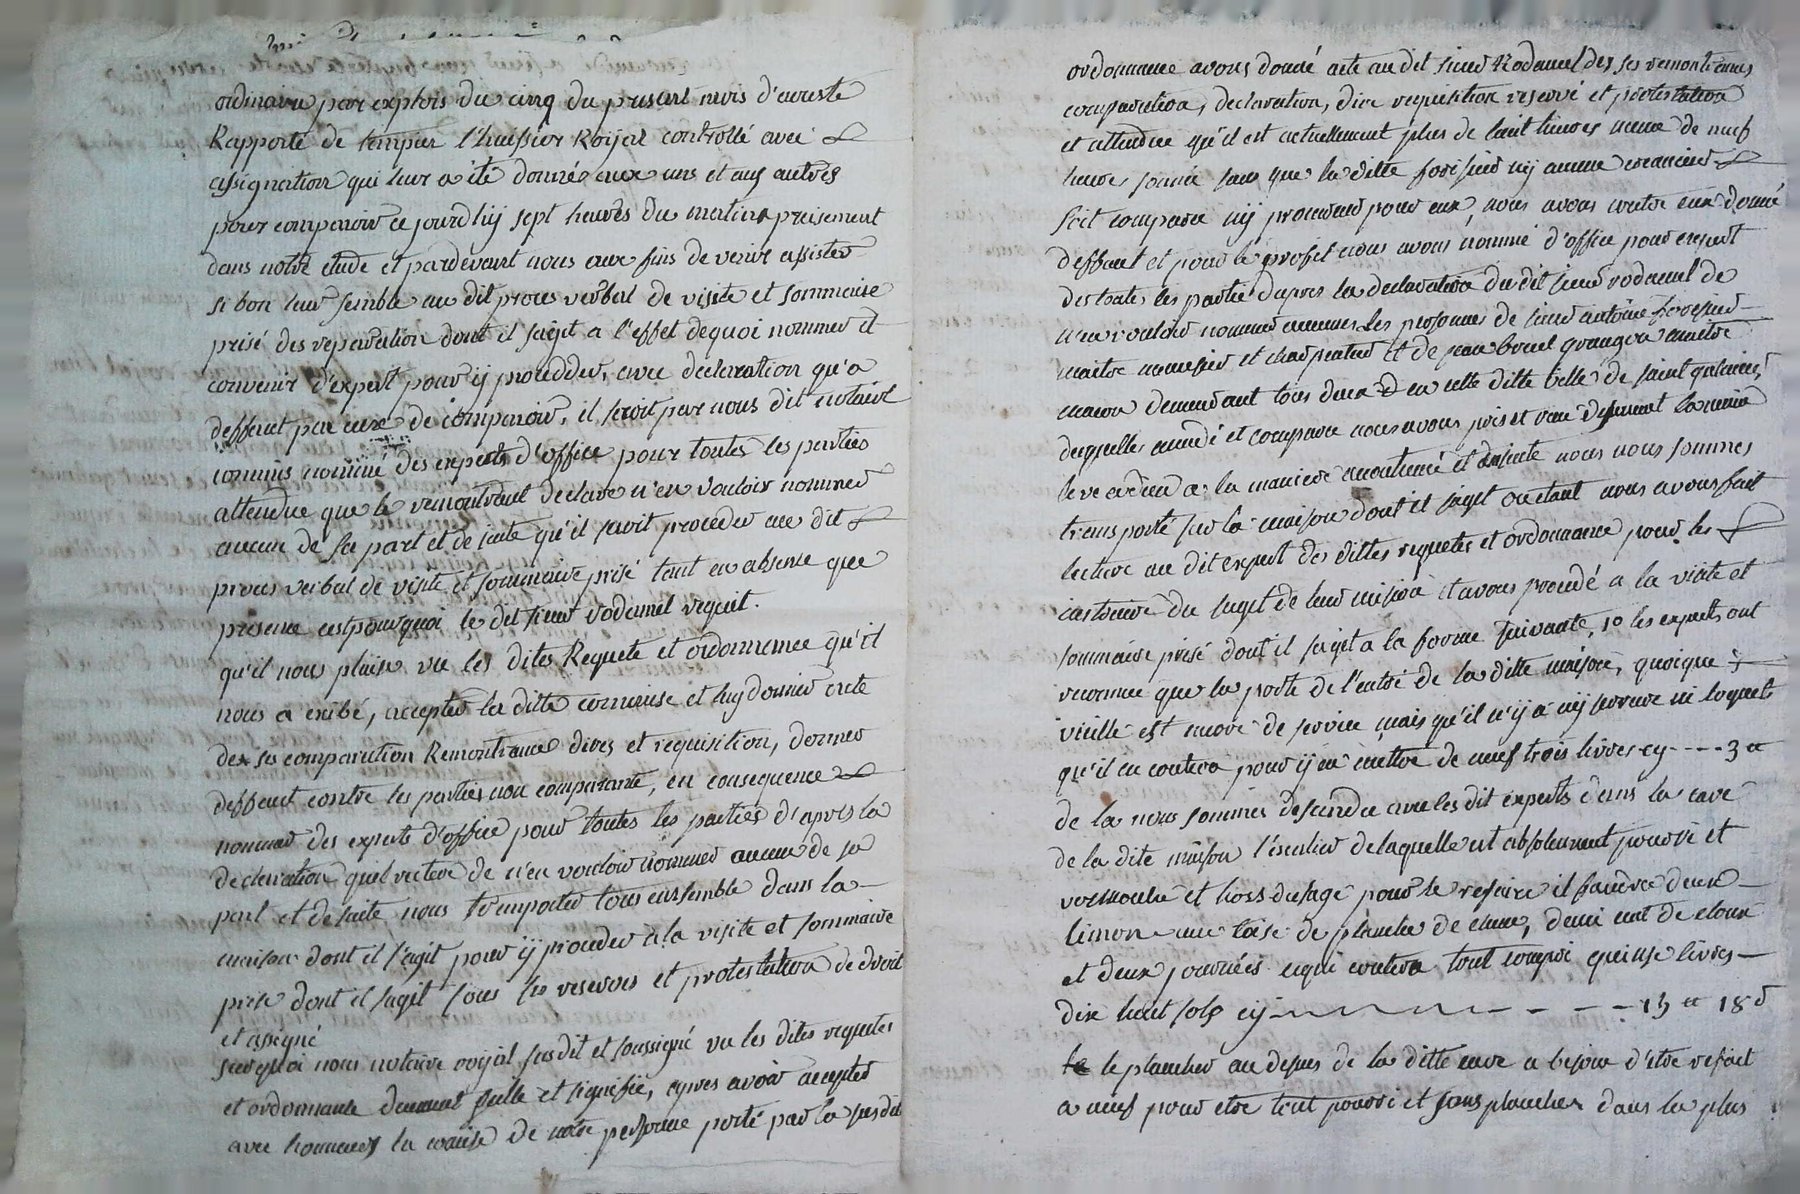 ordinaire par exploit du cinq du present mois d'auouste
Rapporté de tempier l'huissier Royal controllé avec
assignation qui leur a été donnée aux uns et aux autres
pour comparoir ce jourd'huy sept heures du matin preisement
dans notre etude et pardevant nous aux fins de venir assister
si bon leur semble au dit proces verbal de visite et sommaire
prisé des reparation dont il sagit a l'effet dequoi nommer et
convenir d'expert pour ij proceder, avec declaration qu'a
deffaut par eux de comparoir, il seroit par nous dit notaire
commis nommé des experts d'office pour toutes les parties
attendue que le remontrant declare n'en vouloir nommer
aucun de sa part et de suite qu'il seroit proceder au dit
proces verbal de visite et sommaire prisé tant en absence que
presence cestpourquoi le dit sieur rodamel requit.
qu'il nous plaise vu les dites Requete et ordonnence qu'il
nous a exibé, accepter la ditte commise et luy donner acte
des ses comparution Remontrance dires et requisition, donner
deffaut contre les parties non comparante, en consequence
nommer des experts d'office pour toutes les parties d'après la
declaration quil reitere de n'en vouloir nommer aucun de sa
part et de suite nous tranporter tous ensemble dans la
maison dont il s'agit pour ij proceder a la visite et sommaire
prise dont il sagit sous les reserves et protestation de droit
et assigné
surquoi nous notaire roijal susdit et soussigné vu les dites requetes
et ordonnance dument scelle et signifie, apres avoir accepter
avec honneurs la commise de notre personne porté par la susdit
ordonnance avons donné acte au dit sieur Rodamel des ses remontrances
comparution, declaration, dire requisition reservé et protestation
et attendue qu'il est actuellement plus de huit heures meme de neuf
heures sonné sans que la ditte forissier nij aucun creancier
soit comparu nij procureur pour eux, nous avons contre eux donné
deffaut et pour le profit nous avons nommé d'office pour expert
des toutes les partie dapres la declaration du dit sieur rodamel de
n'en vouloir nommer aucunes les personnes de sieur antoine
maitre menuisier et charpentier et de jean grangeon maitre
macon demeurant tous deux en cette ditte ville de saint galmier,
desquelles mandé et comparu nous avons pris et recu dument la main
leve a la maniere accoutumé et ensuite nous nous sommes
transporté sur la maison dont il sagit ou etant nous avons fait
lecture au dit expert des dittes requetes et ordonnance pour les
instruire du sujet de leur mission et avons procedé a la visite et
sommaire prisé dont il sagit a la forme suivante, 1o les experts ont
reconnue que la porte de l'entré de la ditte maison, quoique
vieille est encore de service mais qu'il n'ij a nij serrure ni loquet
qu'il en coutera pour ij en mettre de neuf trois livres cy - - - - 3 tt
de la nous sommes desendu avec les dit experts dans la cave
de la dite maison l'escalier delaquelle est absolument pourri et
vermoulu et hors dusage pour le refaire il faudra deux
limon une toise de planche de chene, demi cent de cloux
et deux journées cequi coutera tout compri quinse livres
dix huit sols cij - - - - 15 tt 18 s
le plancher au desus de la ditte cave a besoin d'etre refait
a neuf pour etre tout pourri et sans plancher dans la plus